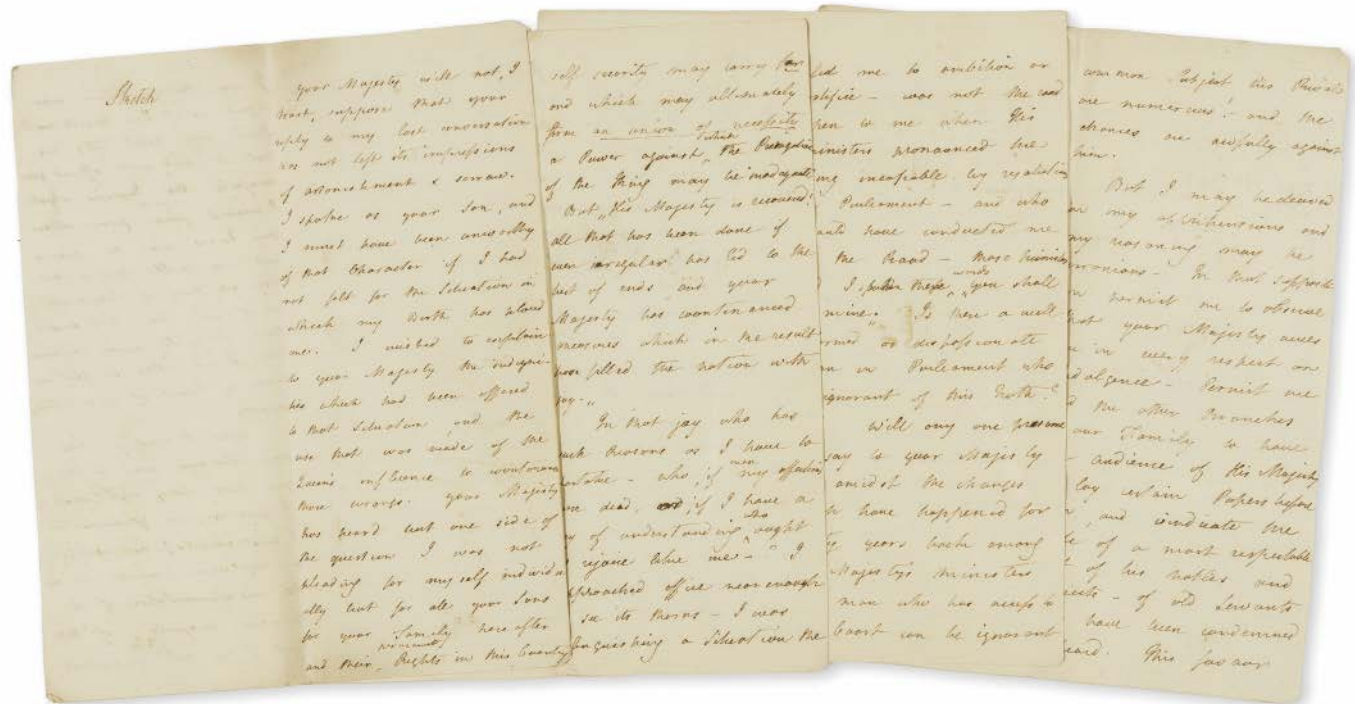 Sketch
Your Majesty will not, I
trust, suppose that your
reply to my last conversation
has not left its impressions
of astonishment & sorrow.
I spoke as your Son, and
I must have been unworthy
of that Character if I had
not felt for the Situation in
which my Birth has placed
me. I wished to explain
to your Majesty the indigni-
ties which had been offered
to that Situation and the
use that was made of the
Queen's influence to countenance
those wrongs. Your Majesty
has heard but one side of
the question I was not
pleading for myself individu
ally but for all your Sons
for your Family hereafter
and their permanent Rights in this Country
self security may carry far
and which may ultimately
form an union of necessity
a Power against which the Prerogative
of the King may be inadequate
But "His Majesty is recovered!
all that has been done if
even irregular has led to the
best of ends and your
Majesty has countenanced
measures which in the result
have filled the nation with
joy."
In that joy who has
such Reasons as I have to
who, if even my affections
were dead, if I have a
of understanding who ought
rejoice like me - I
approached office near enough
see its thorns - I was
a Situation the
led me to ambition or
- was not the road
open to me when His
Ministers pronounced the
King incapable by resolution
Parliament - and who
would have conducted me
the Road - those
I spoke these words "you shall
mine". Is there a well
informed or dispassionate
in Parliament who
ignorant of this Truth?
Will any one presume
say to your Majesty
amidst the changes
have happened for
years back among
Majesty's ministers
man who has access to
Court can be ignorant
common Subject his Rivals
are numerous! and the
chances are awfully against
him.
But I may be deceived
my apprehensions and
my reasoning may be
erroneous - In that suppositi
permit me to observe
that your Majesty
in every respect an
indulgence - Permit me
the other Branches
your Family to have
audience of His Majesty
lay certain Papers before
and vindicate the
of a most respectable
of his nobles and
- of old Servants
have been condemned
heard. This favour